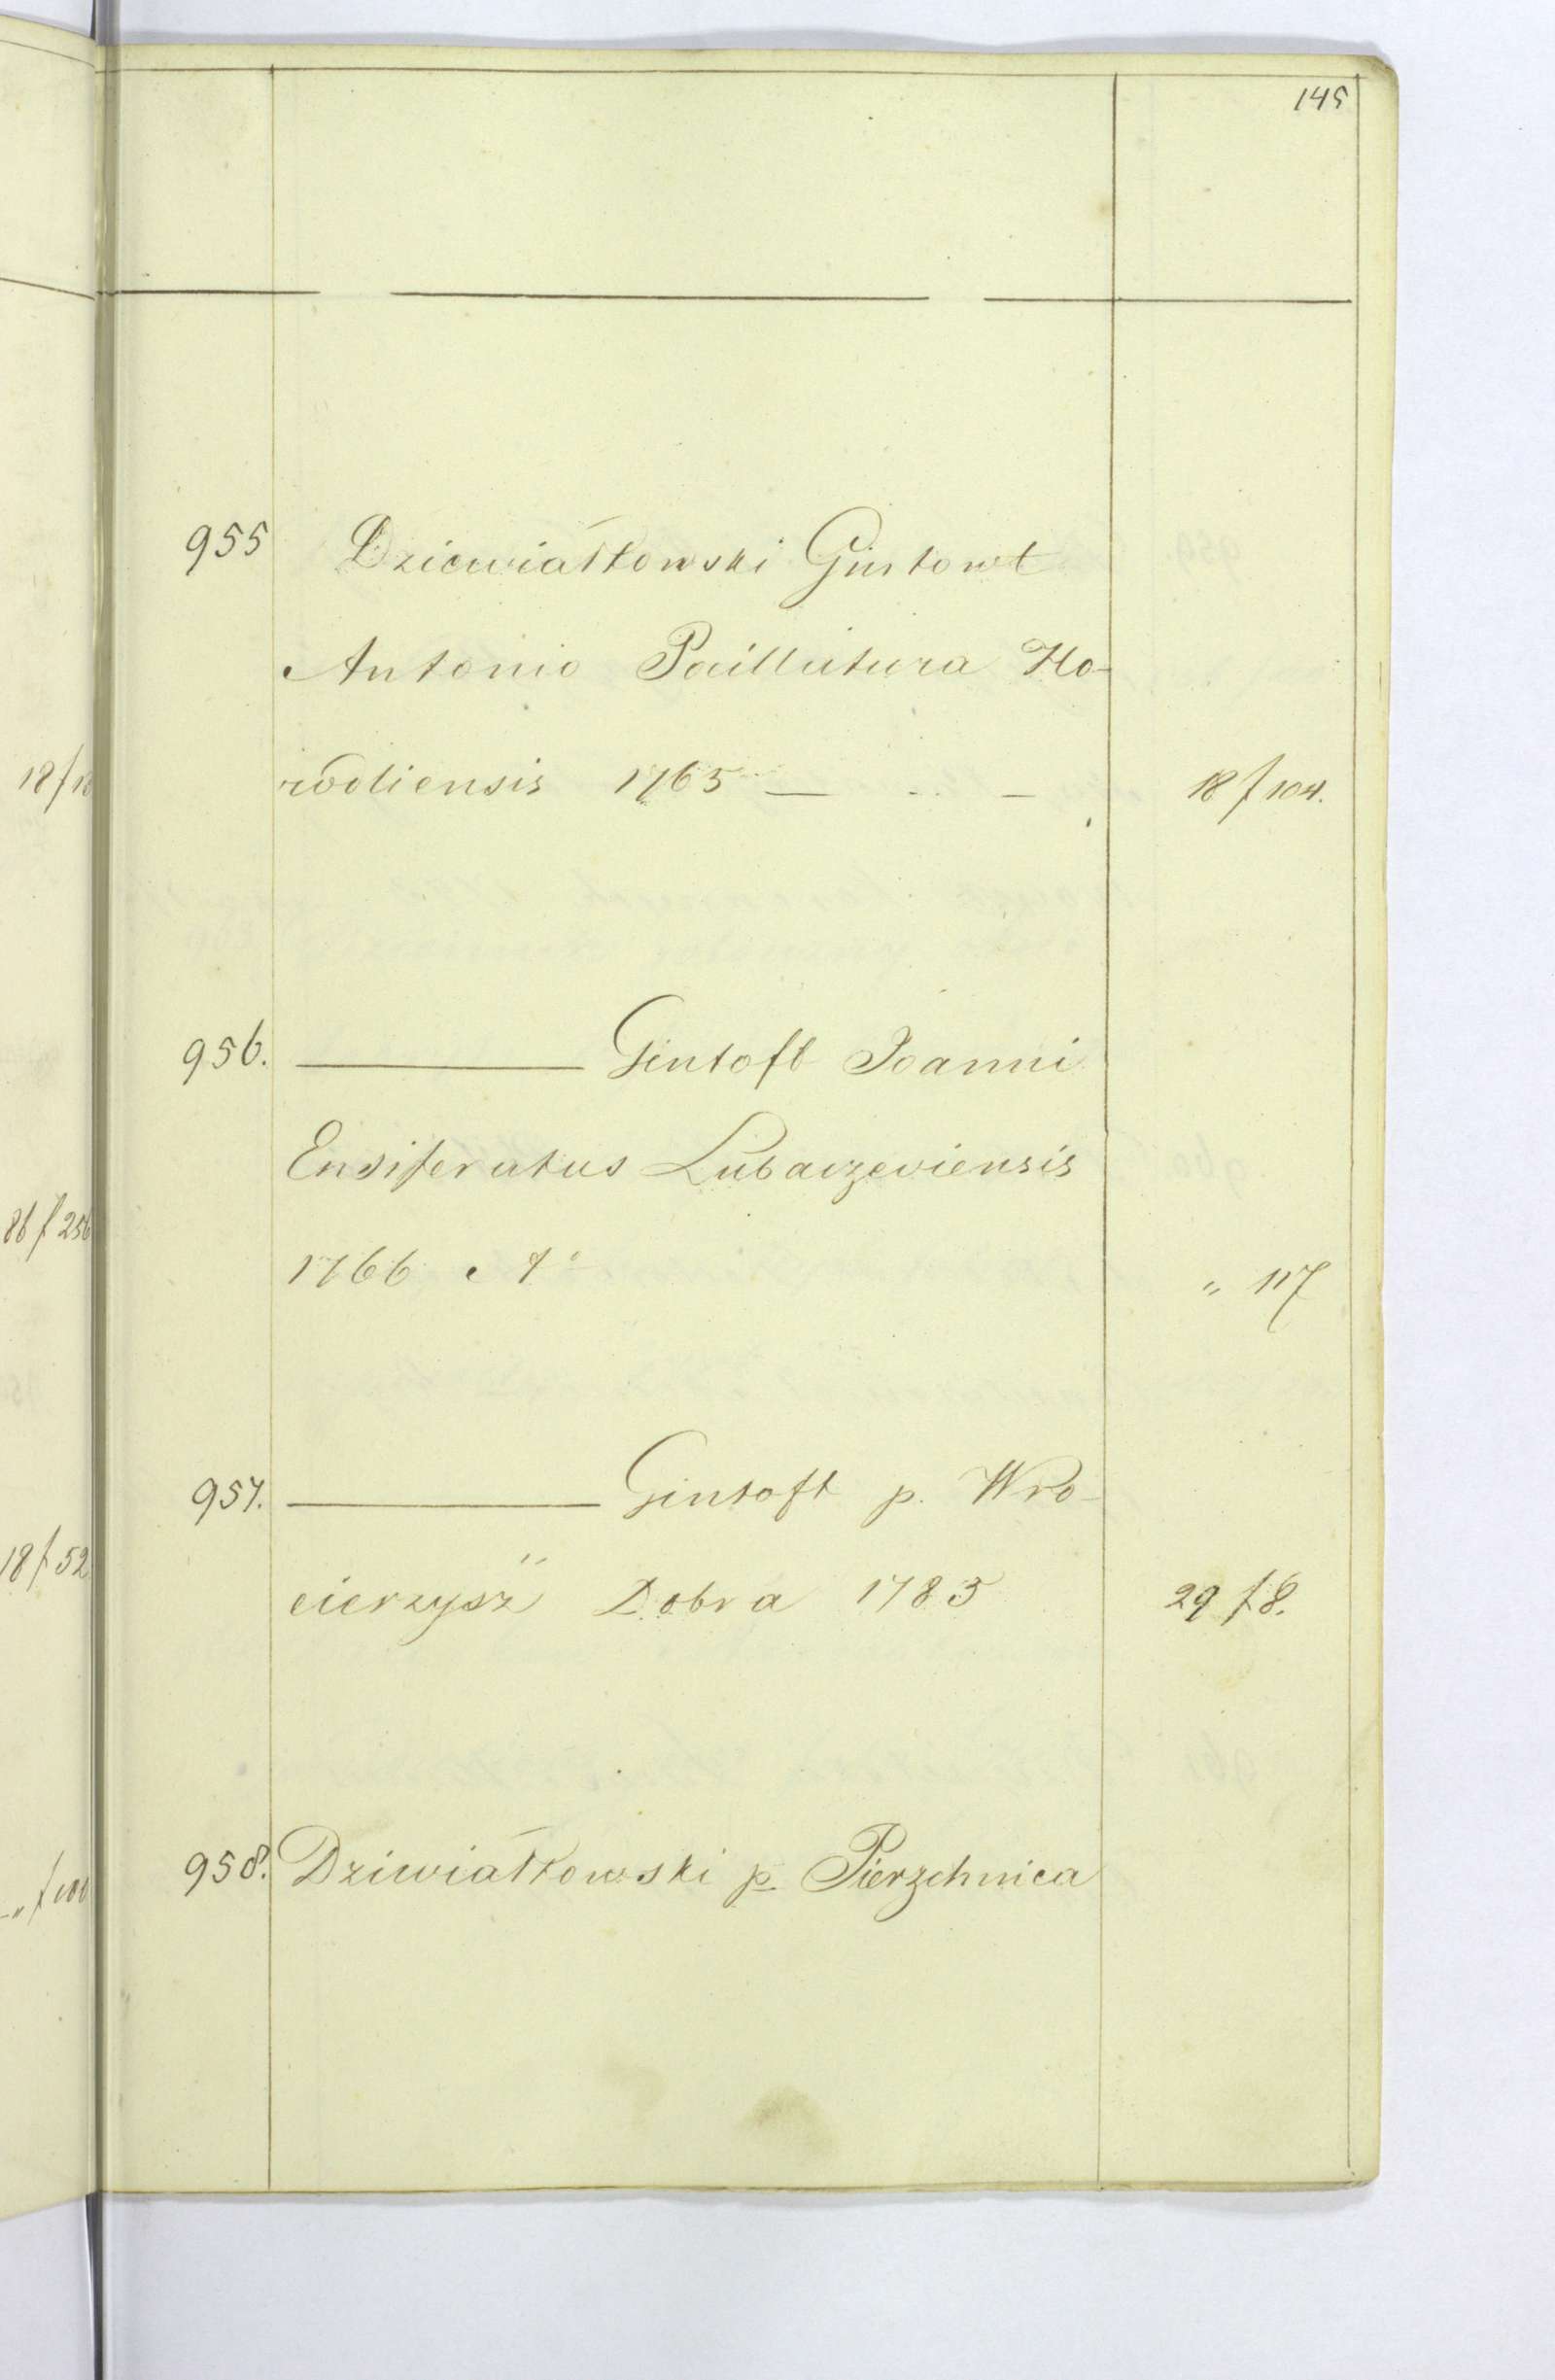 145
955 Dziewiałkowski Gintowt
Antonio Pocillatura Ho-
rodiensis 1765 — .. — 18 f 104.
956. ——— Gintoft Joanni
Ensiferatus Lubaczeviensis
1766 „ 117
957. ——— Gintoft p. Wro-
cierzysz Dobra 1783 29 f 8.
958. Dziwiałkowski p. Pierzchnica
86 f 256
18 f 52